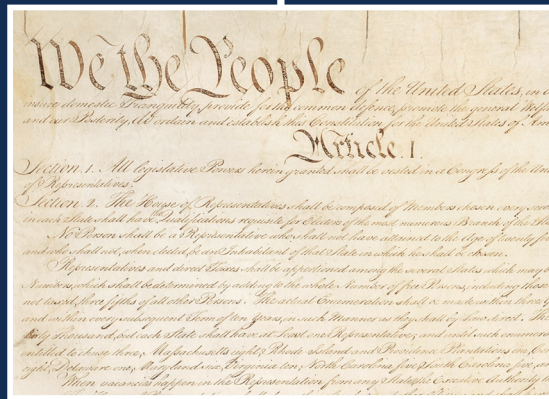 We the People of the United States, in O
insure domestic Tranquility, provide for the common defence, promote the general Welf
and our Posterity, do ordain and establish this Constitution for the United States of Am
Article. I.
Section. 1. All legislative Powers herein granted shall be vested in a Congress of the Uni
of Representatives.
Section. 2. The House of Representatives shall be composed of Members chosen every seco
in each State shall have Qualifications requisite for Electors of the most numerous Branch of the
No Person shall be a Representative who shall not have attained to the Age of twenty five
and who shall not, when elected, be an Inhabitant of that State in which he shall be chosen.
Representatives and direct Taxes shall be apportioned among the several States which may
Numbers, which shall be determined by adding to the whole Number of free Persons, including those
not taxed, three fifths of all other Persons. The actual Enumeration shall be made within three
and within every subsequent Term of ten Years, in such Manner as they shall by Law direct. The
thirty Thousand, but each State shall have at Least one Representative; and until such enumer
entitled to chuse three, Massachusetts eight, Rhode Island and Providence Plantations one, Con
eight, Delaware one, Maryland six, Virginia ten, North Carolina five, South Carolina five, and
When vacancies happen in the Representation from any State, the Executive Authority